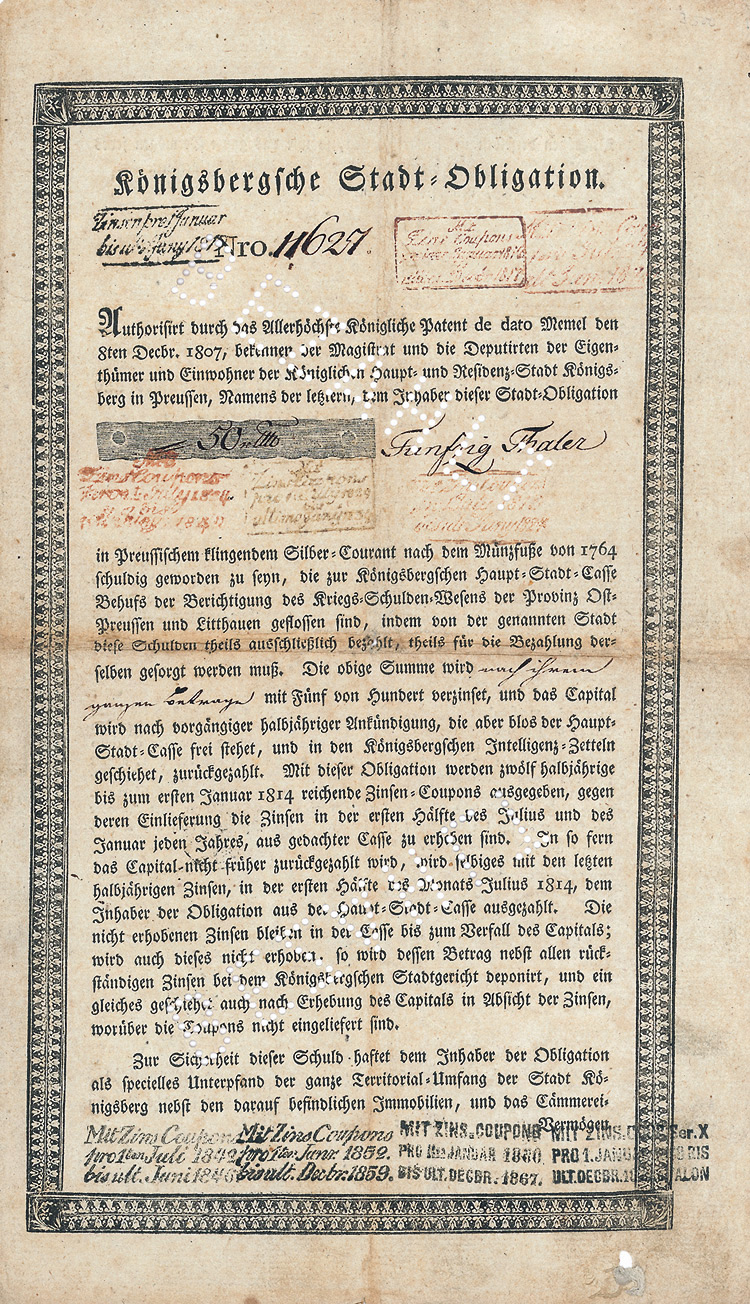 Königsbergsche Stadt-Obligation.
Zinsen pro Januar
bis ult.
Nro. 11627.
Zins Coupons
Authorisirt durch das Allerhöchste Königliche Patent de dato Memel den
8ten Decbr. 1807, bekennen der Magistrat und die Deputirten der Eigen-
thümer und Einwohner der Königlichen Haupt- und Residenz-Stadt Königs-
berg in Preussen, Namens der letztern, dem Inhaber dieser Stadt-Obligation
50 Funfzig Thaler
Mit
Zins Coupons
Mit
Zins Coupons
in Preussischem klingendem Silber-Courant nach dem Münzfuße von 1764
schuldig geworden zu seyn, die zur Königsbergschen Haupt-Stadt-Casse
Behufs der Berichtigung des Kriegs-Schulden-Wesens der Provinz Ost-
Preussen und Litthauen geflossen sind, indem von der genannten Stadt
diese Schulden theils ausschließlich bezahlt, theils für die Bezahlung der-
selben gesorgt werden muß. Die obige Summe wird nach ihrem
ganzen Betrage mit Fünf von Hundert verzinset, und das Capital
wird nach vorgängiger halbjähriger Ankündigung, die aber blos der Haupt-
Stadt-Casse frei stehet, und in den Königsbergschen Intelligenz-Zetteln
geschiehet, zurückgezahlt. Mit dieser Obligation werden zwölf halbjährige
bis zum ersten Januar 1814 reichende Zinsen-Coupons ausgegeben, gegen
deren Einlieferung die Zinsen in der ersten Hälfte des Julius und des
Januar jeden Jahres, aus gedachter Casse zu erheben sind. In so fern
das Capital nicht früher zurückgezahlt wird, wird selbiges mit den letzten
halbjährigen Zinsen, in der ersten Hälfte des Monats Julius 1814, dem
Inhaber der Obligation aus der Haupt-Stadt-Casse ausgezahlt. Die
nicht erhobenen Zinsen bleiben in der Casse bis zum Verfall des Capitals;
wird auch dieses nicht erhoben, so wird dessen Betrag nebst allen rück-
ständigen Zinsen bei dem Königsbergschen Stadtgericht deponirt, und ein
gleiches geschiehet auch nach Erhebung des Capitals in Absicht der Zinsen,
worüber die Coupons nicht eingeliefert sind.
Zur Sicherheit dieser Schuld haftet dem Inhaber der Obligation
als specielles Unterpfand der ganze Territorial-Umfang der Stadt Kö-
nigsberg nebst den darauf befindlichen Immobilien, und das Cämmerei-
Vermögen
Mit Zins Coupons Mit Zins Coupons MIT ZINS.COUPONS MIT ZINS. Ser.X
pro 1ten Juli pro 1ten Janr. 1852. PRO 1ten JANUAR 1860 PRO 1. JANUAR BIS
bis ult. Juni bis ult. Decbr. 1859. BIS ULT. DECBR. 1867. ULT. DECBR. TALON